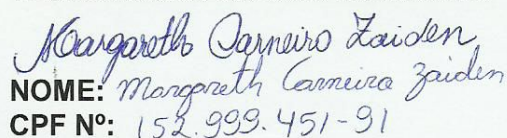 Margareth Carneiro Zaiden
NOME: Margareth Carneiro Zaiden
CPF Nº: 152.999.451-91